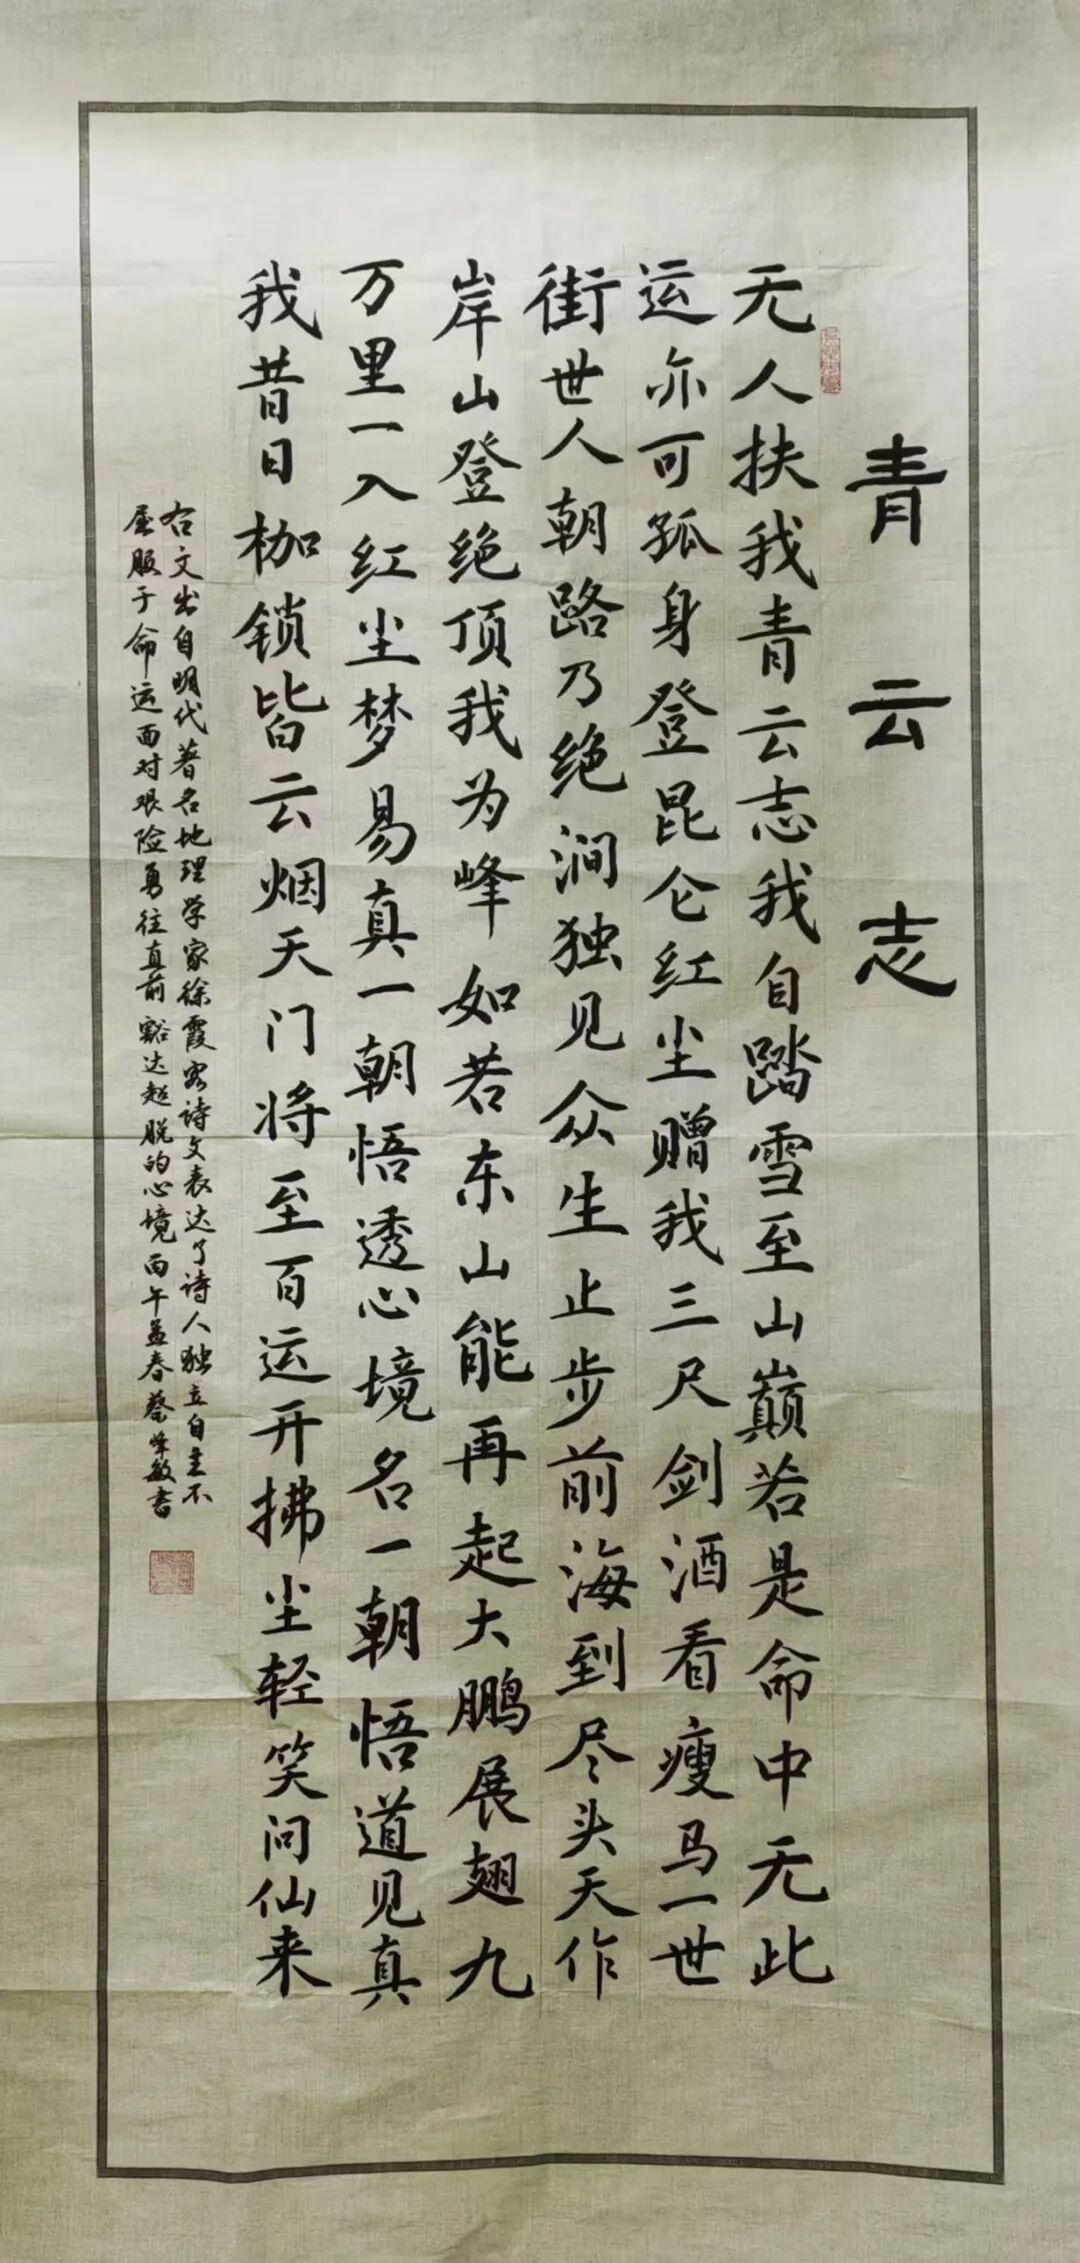 青云志
无人扶我青云志我自踏雪至山巅若是命中无此
运亦可孤身登昆仑红尘赠我三尺剑酒看瘦马一世
街世人朝路乃绝涧独见众生止步前海到尽头天作
岸山登绝顶我为峰如若东山能再起大鹏展翅九
万里一入红尘梦易真一朝悟透心境名一朝悟道见真
我昔日枷锁皆云烟天门将至百运开拂尘轻笑问仙来
右文出自明代著名地理学家徐霞客诗文表达了诗人独立自主不
屈服于命运面对艰险勇往直前豁达超脱的心境丙午孟春蔡峰敏书